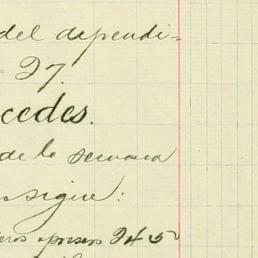 del dependi=
= 27.
cedes.
de la semana
sigue:
eros a pesos 245